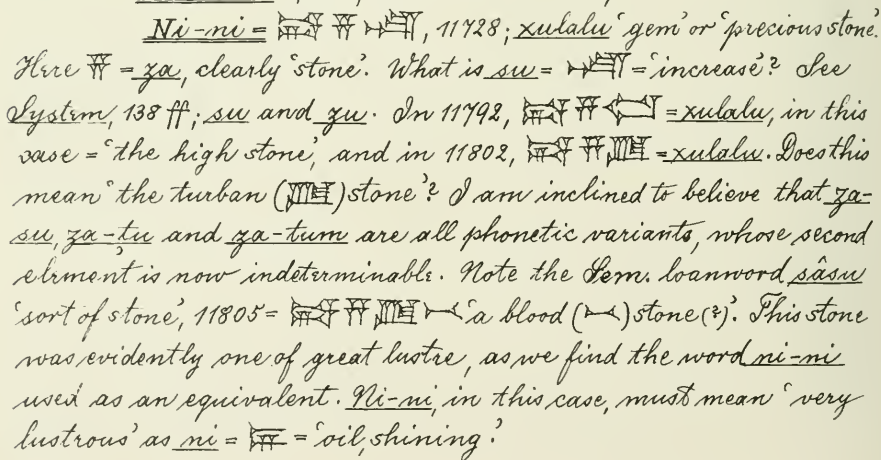 Ni-ni = 𒍝, 11728; xulalu 'gem' or 'precious stone'.
Here 𒍝 = za, clearly 'stone'. What is su = = 'increase'? See
System, 138 ff; su and zu. In 11792, 𒍝 = xulalu, in this
case = 'the high stone', and in 11802, 𒍝 = xulalu. Does this
mean 'the turban ( ) stone'? I am inclined to believe that za-
su, za-tu and za-tum are all phonetic variants, whose second
element is now indeterminable. Note the Sem. loanword sâsu
'sort of stone', 11805 = 𒍝 𒁁 'a blood (𒁁) stone (?)'. This stone
was evidently one of great lustre, as we find the word ni-ni
used as an equivalent. Ni-ni, in this case, must mean 'very
lustrous' as ni = 𒉌 = 'oil, shining'.